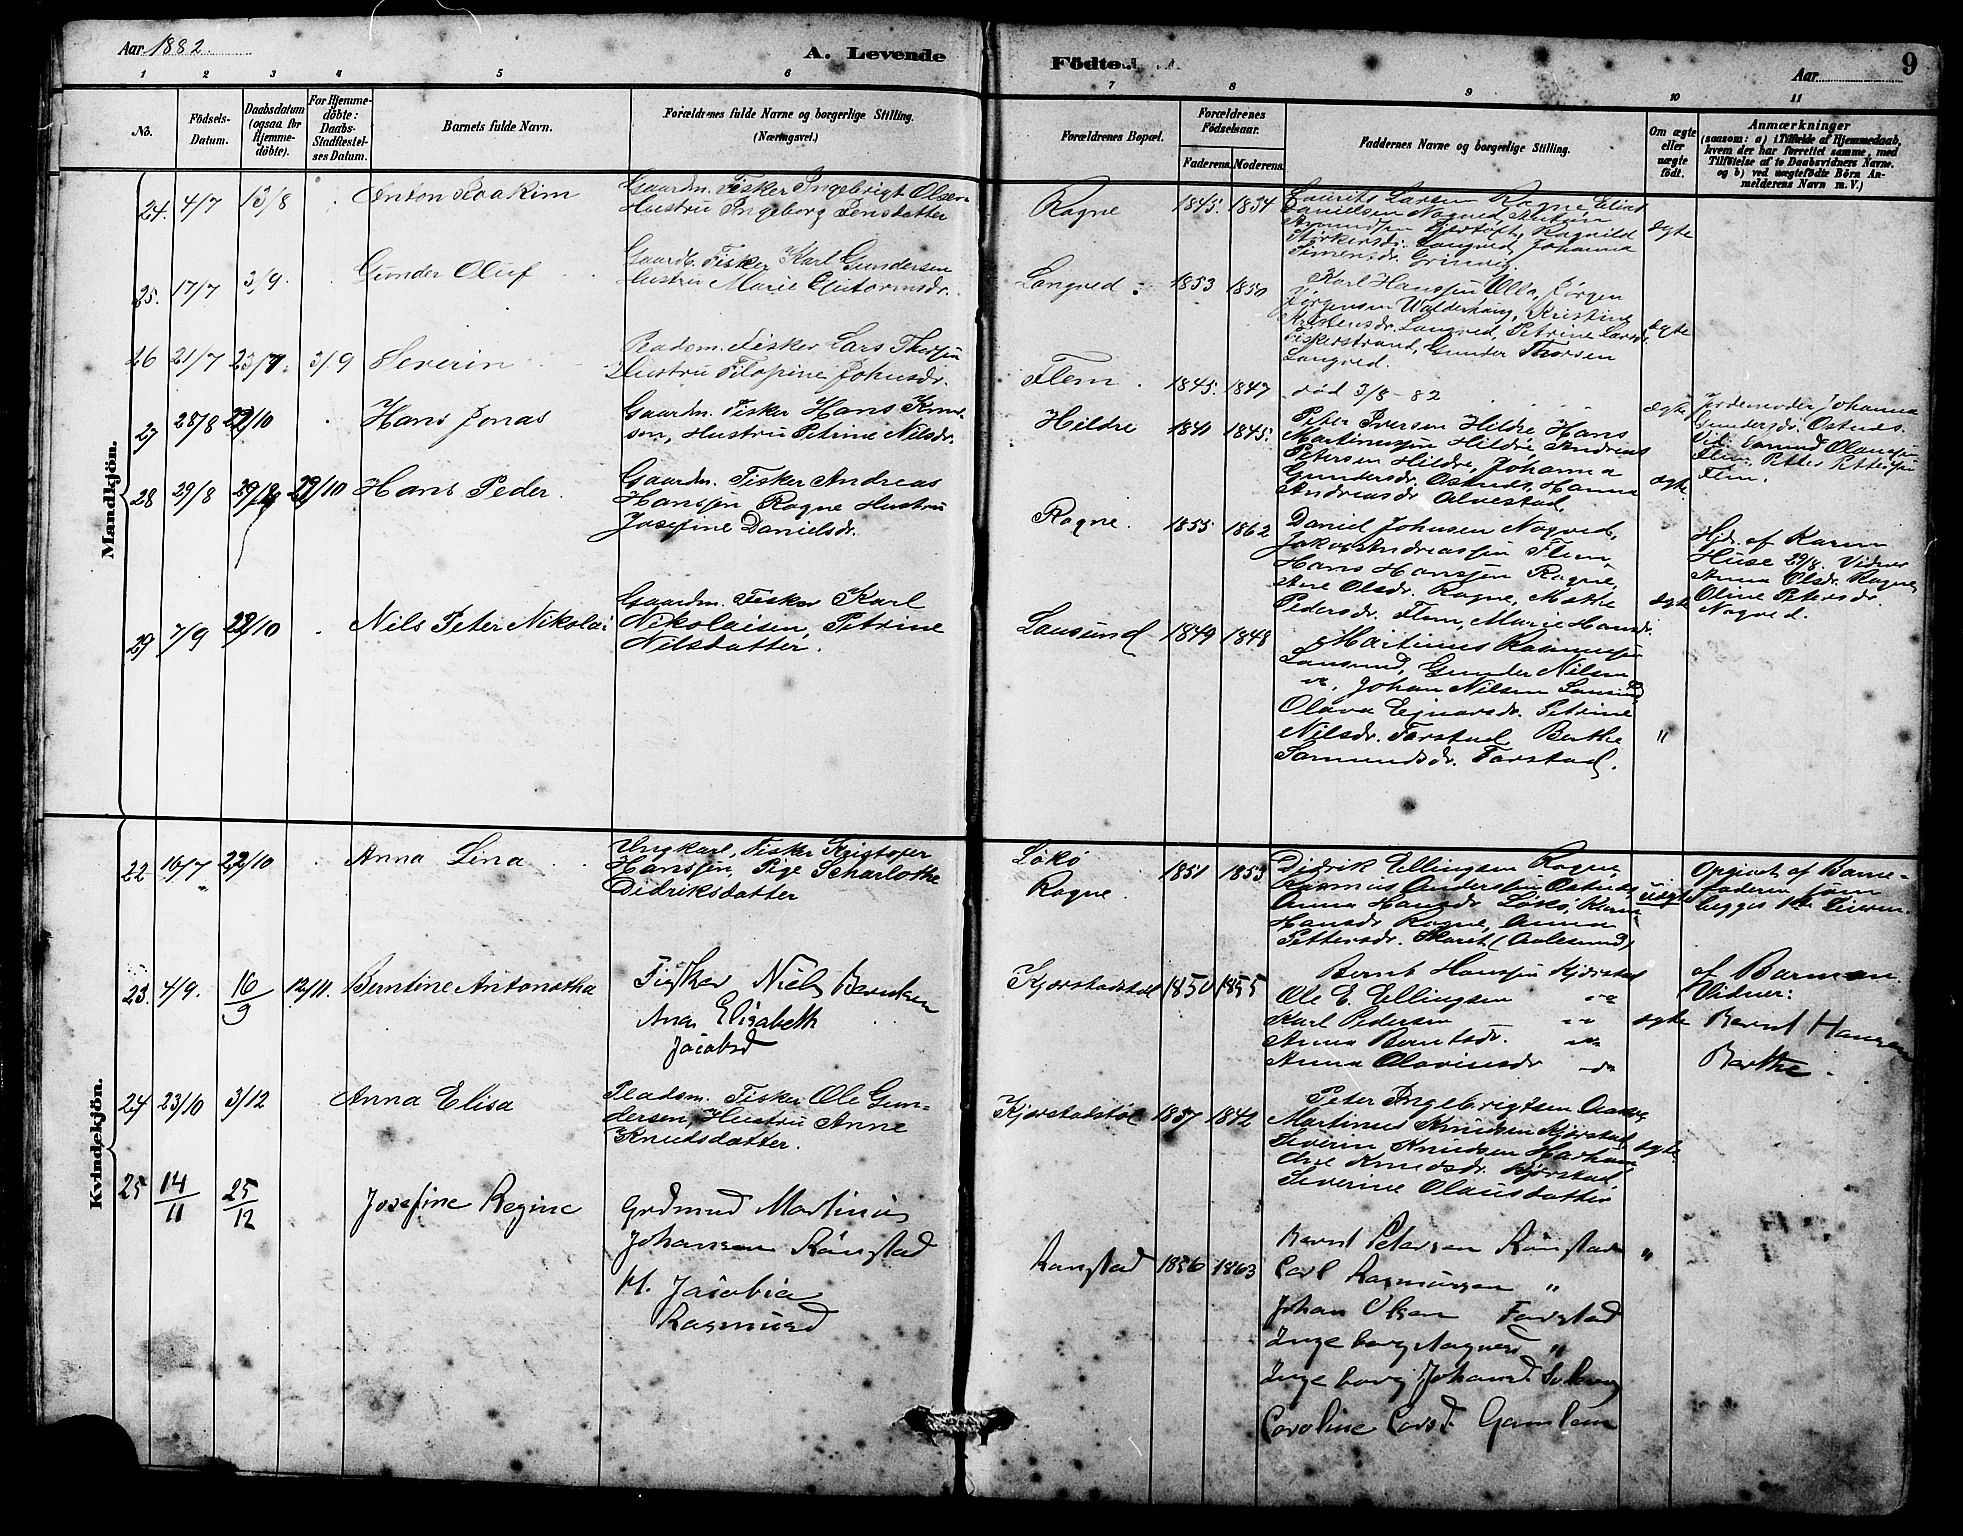 Aar 1882.
A. Levende
Födte.
Aar
9
1 2 3 4 5 6 7 8 9 10 11
No.
Födsels-
Datum.
Daabsdatum
(ogsaa for
Hjemme-
döbte).
For Hjemme-
döbte:
Daabs-
Stadfæstel-
ses Datum.
Barnets fulde Navn.
Forældrenes fulde Navne og borgerlige Stilling.
(Næringsvei.)
Forældrenes Bopæl.
Forældrenes
Födselsaar.
Faderens. Moderens.
Faddernes Navne og borgerlige Stilling.
Om ægte
eller
uægte
födt.
Anmærkninger
(saasom: a) i Tilfælde af Hjemmedaab,
hvem der har forrettet samme, med
Tilföielse af to Daabsvidners Navne,
og b) ved uægtefödte Börn An-
melderens Navn m. V.)
Mandkjön.
24. 4/7 13/8 Anton Joakim
Gaardm. Fisker Ingebrigt Olsen
Hustru Ingeborg Jensdatter
Rogne 1845. 1854
Laurits Larsen Rogne, Elias
Danielsen Nogved, Anton
Amundsen Fjørtoft, Ragnild
Longved, Johanna
Simensdr. Grinvig.
ægte
25. 17/7 3/9. Gunder Oluf
Gaardb. Fisker Karl Gundersen
Hustru Marie Guttormsdr.
Longved 1853 1850
Karl Hanssen Ulla, Jørgen
Jörgensen Walderhaug, Kristine
Longved, Petrine Larsdr.
Fiskerstrand, Gunder Thorsen
Longved.
ægte
26 21/7 23/7. 3/9 Severin
Pladsm. Fisker Lars
Hustru Filopine Johnsdr.
Flem. 1845. 1847
død 3/8-82
ægte
Jordemoder Johanna
Gundersdr. Østnes.
Vid. Olaussen
Flem, Petter Pettersen
Flem.
27 28/8 22/10 Hans Jonas
Gaardm. Fisker Hans Knud-
sen, Hustru Petrine Nilsdr.
Hildre 1841 1845.
Peter Iversen Hildre, Hans
Martinussen Hildre, Andreas
Petersen Hildre, Johanna
Gundersdr. Østnes, Hanna
Andreasdr. Alvestad.
ægte
28 29/8 29/8 22/10 Hans Peder.
Gaardm. Fisker Andreas
Hanssen Rogne Hustru
Josefine Danielsdr.
Rogne. 1855 1862
Daniel Johnsen Nogved,
Jakob Andreassen Flem,
Hans Hanssen Rogne,
Ane Olsdr. Rogne,
Pedersdr. Flem, Marie Hansdr.
ægte
Hjd. af Karen
Huse 29/8. Vidner
Anna Olsdr. Rogne,
Oline Petersdr.
Nogved.
29 7/9 22/10 Nils Peter Nikolai
Gaardm. Fisker Karl
Nikolaisen, Petrine
Nilsdatter.
Lausund 1849 1848
Martinus Rasmussen
Lausund, Gunder Nilsen
Johan Nilsen Lausund
Olava Ejnarsdr. Petrine
Nilsdr. Farstad, Berthe
Samundsdr. Farstad.
"
Kvindekjön.
22 16/7 22/10 Anna Lina
Ungkarl, Fisker Kristofer
Hanssen, Pige Scharlothe
Didriksdatter
Løkø
Rogne 1851 1853
Didrik Ellingsen Rogne,
Rasmus Anderssen Østnes,
Anna Hansdr. Løkø, Karen
Hansdr. Rogne, Anna
Pettersdr. Skaret (Aalesund)
uægte
Opgivet af Barne-
faderen som
begges 1ste Leierm.
23. 4/9. 16/9 12/11. Berntine Antonetha
Fisker Niels Berntsen
Ane Elisabeth
Jacobsd
Kjørstadstøl 1850 1855
Bernt Hanssen Kjørstad
Ole E. Ellingsen
Karl Pedersen
Anna Berntsdr.
Anna Olavinsdr
ægte
af Barman.
Vidner:
Bernt Hansen
Berthe.
24 23/10 3/12 Anna Elisa
Pladsm. Fisker Ole Gun-
dersen, Hustru Anne
Knudsdatter.
Kjørstadstøl 1857 1842
Peter Ingebrigtsen
Martinus Knudsen Kjørstad
Severin Knudsen Harham
Ane Knudsdr. Kjørstad,
Severine Olausdatter
ægte.
25 14/11 25/12 Josefine Regine
Gudmund Martinus
Johansen Rönstad
H. Jacobia
Rasmusd
Rönstad 1856 1863
Bernt Petersen Rönstad
Carl Rasmussen "
Johan Olsen Farstad
Ingeborg Magnesd "
Ingeborg Johansd.
Caroline Larsd. Gamlem
"